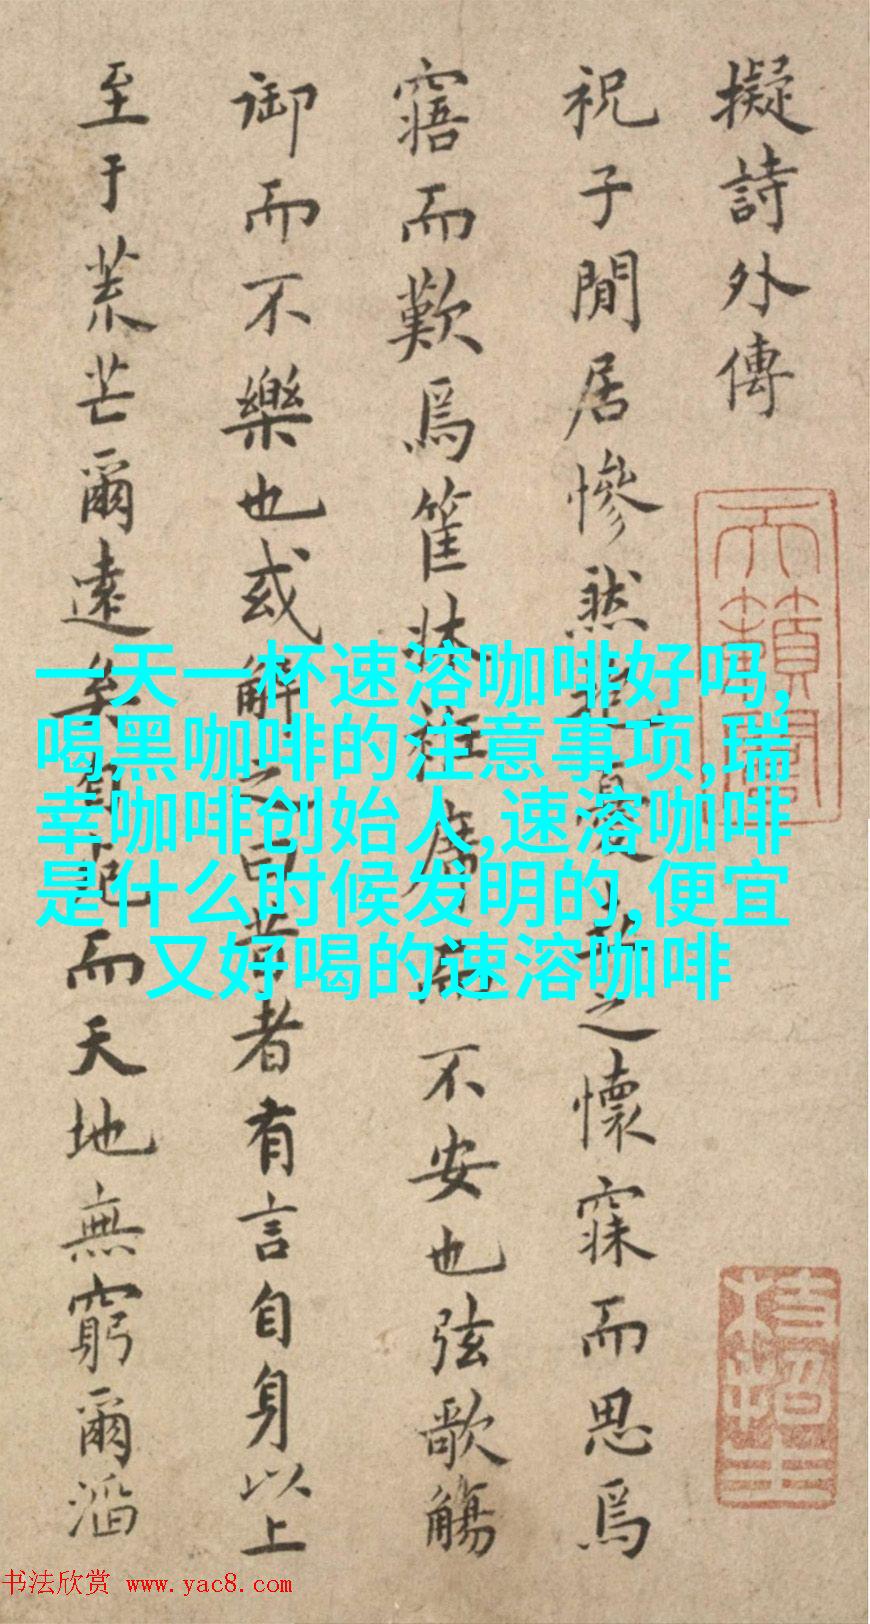 擬詩外傳
祝子閒居慘然起憂之懷寐而思焉
寤而歎焉筐牀衽席而不安也弦歌觴
御而不樂也或解之曰昔者有言自身以上
至于荒芒爾遠矣而天地無窮爾滔
一天一杯速溶咖啡好吗,
喝黑咖啡的注意事项,瑞
幸咖啡创始人,速溶咖啡
是什么时候发明的,便宜
又好喝的速溶咖啡
天籟閣
枝指生
书法欣赏 www.yac8.com